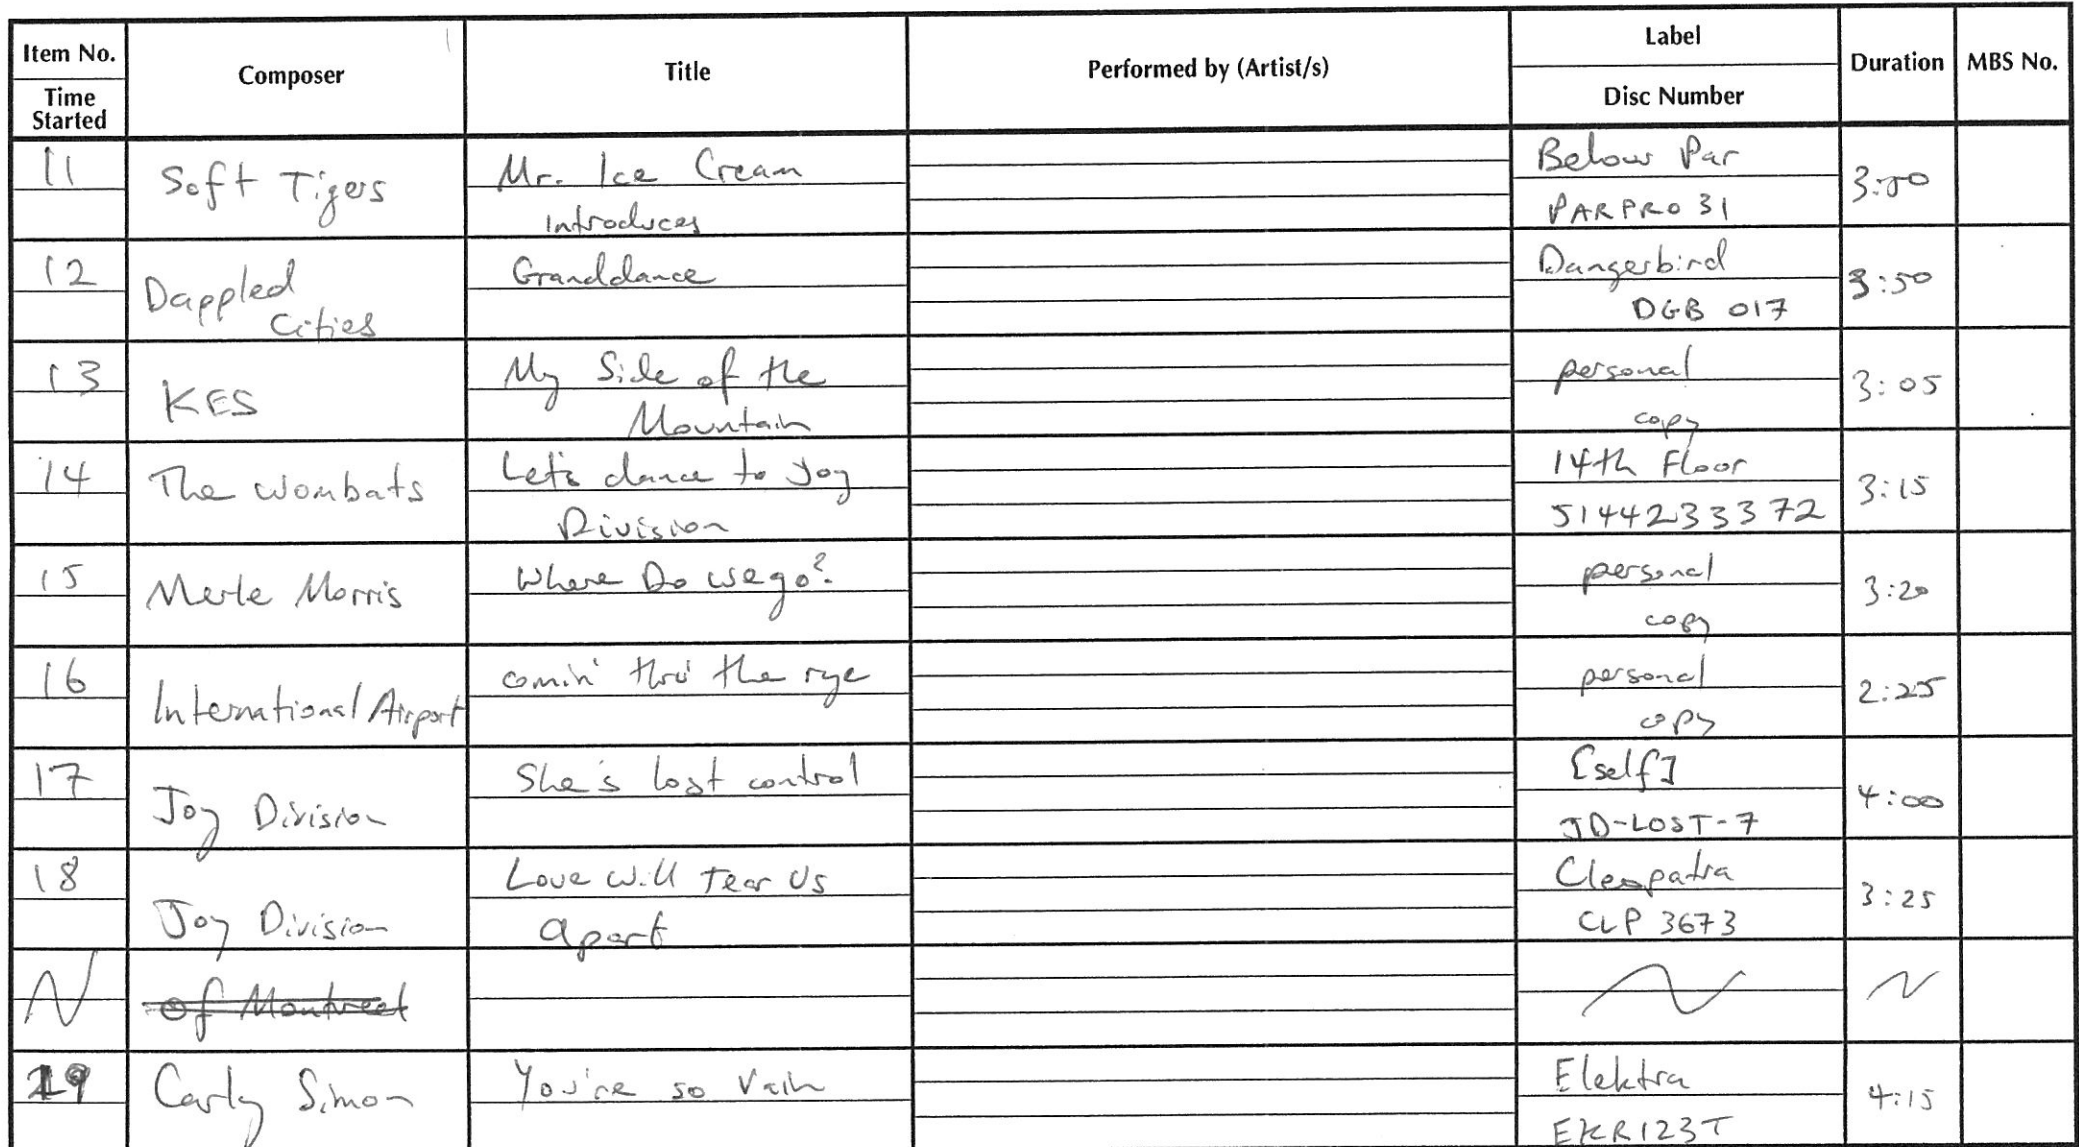 Item No.
Time Started
Composer
Title
Performed by (Artist/s)
Label
Disc Number
Duration
MBS No.
11
Soft Tigers
Mr. Ice Cream
introduces
Below Par
PARPRO 31
3:50
12
Dappled
Cities
Granddance
Dangerbird
DGB 017
3:50
13
KES
My Side of the
Mountain
personal
copy
3:05
14
The Wombats
Let's dance to Joy
Division
14th Floor
51442333372
3:15
15
Merle Morris
Where Do we go?
personal
copy
3:20
16
International Airport
comin' thru' the rye
personal
copy
2:25
17
Joy Division
She's lost control
[self]
JD-LOST-7
4:00
18
Joy Division
Love will Tear Us
apart
Cleopatra
CLP 3673
3:25
of Montreal
19
Carly Simon
You're so Vain
Elektra
EKR123T
4:15